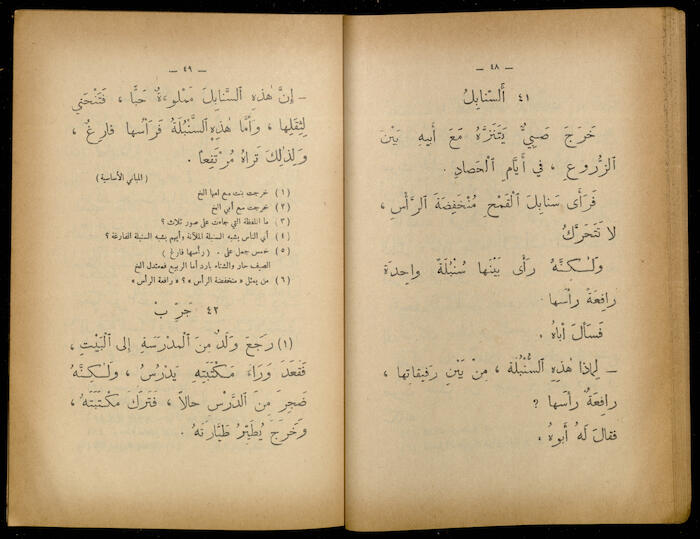 — ٤٨ —
٤١ أَلسَّنابِلُ
خَرَجَ صَبِيٌّ يَتَنَزَّهُ مَعَ أَبيهِ بَيْنَ
الزُّروعِ ، في أَيَّامِ الْحَصادِ .
فَرَأَى سَنابِلَ الْقَمْحِ مُنْخَفِضَةَ الرَّأْسِ ،
لا تَتَحَرَّكُ
وَلٰكِنَّهُ رَأَى بَيْنَها سُنْبُلَةً واحِدةً
رافِعَةً رأْسَها .
فَسأَلَ أَباهُ .
— لِماذا هٰذِهِ السُّنْبُلَةُ ، مِنْ بَيْنِ رَفيقاتِها ،
رافِعَةٌ رأْسَها ؟
فقالَ لَهُ أَبوهُ .
— ٤٩ —
— إِنَّ هٰذِهِ السَّنابِلَ مَمْلوءَةٌ حَبًّا ، فَتَنْحَني
لِثِقَلِها ، وَأَمَّا هٰذِهِ السُّنْبُلَةُ فَرَأْسُها فارِغٌ ،
وَلِذٰلِكَ تَراهُ مُرْتَفِعاً .
(المباني الأساسية)
(١) خرجت بنت مع امها الخ
(٢) خرجت مع أبي الخ
(٣) ما اللفظة التي جاءت على صور ثلاث ؟
(٤) أي الناس يشبه السنبلة الملآنة وأيهم يشبه السنبلة الفارغة ؟
(٥) خمس جمل على . (رأسها فارغ)
الصيف حار والشتاء بارد أما الربيع فمعتدل الخ
(٦) من يمثل «منخفضة الرأس» ؟ «رافعة الرأس»
٤٢ جَرِّبْ
(١) رَجَعَ وَلَدٌ مِنَ الْمَدْرَسَةِ إِلى الْبَيْتِ ،
فَقَعَدَ وَراءَ مَكْتَبَتِهِ يَدْرُسُ ، وَلٰكِنَّهُ
ضَجِرَ مِنَ الدَّرْسِ حالاً ، فَتَرَكَ مَكْتَبَتَهُ ،
وَخَرَجَ يُطَيِّرُ طَيَّارَتَهُ .